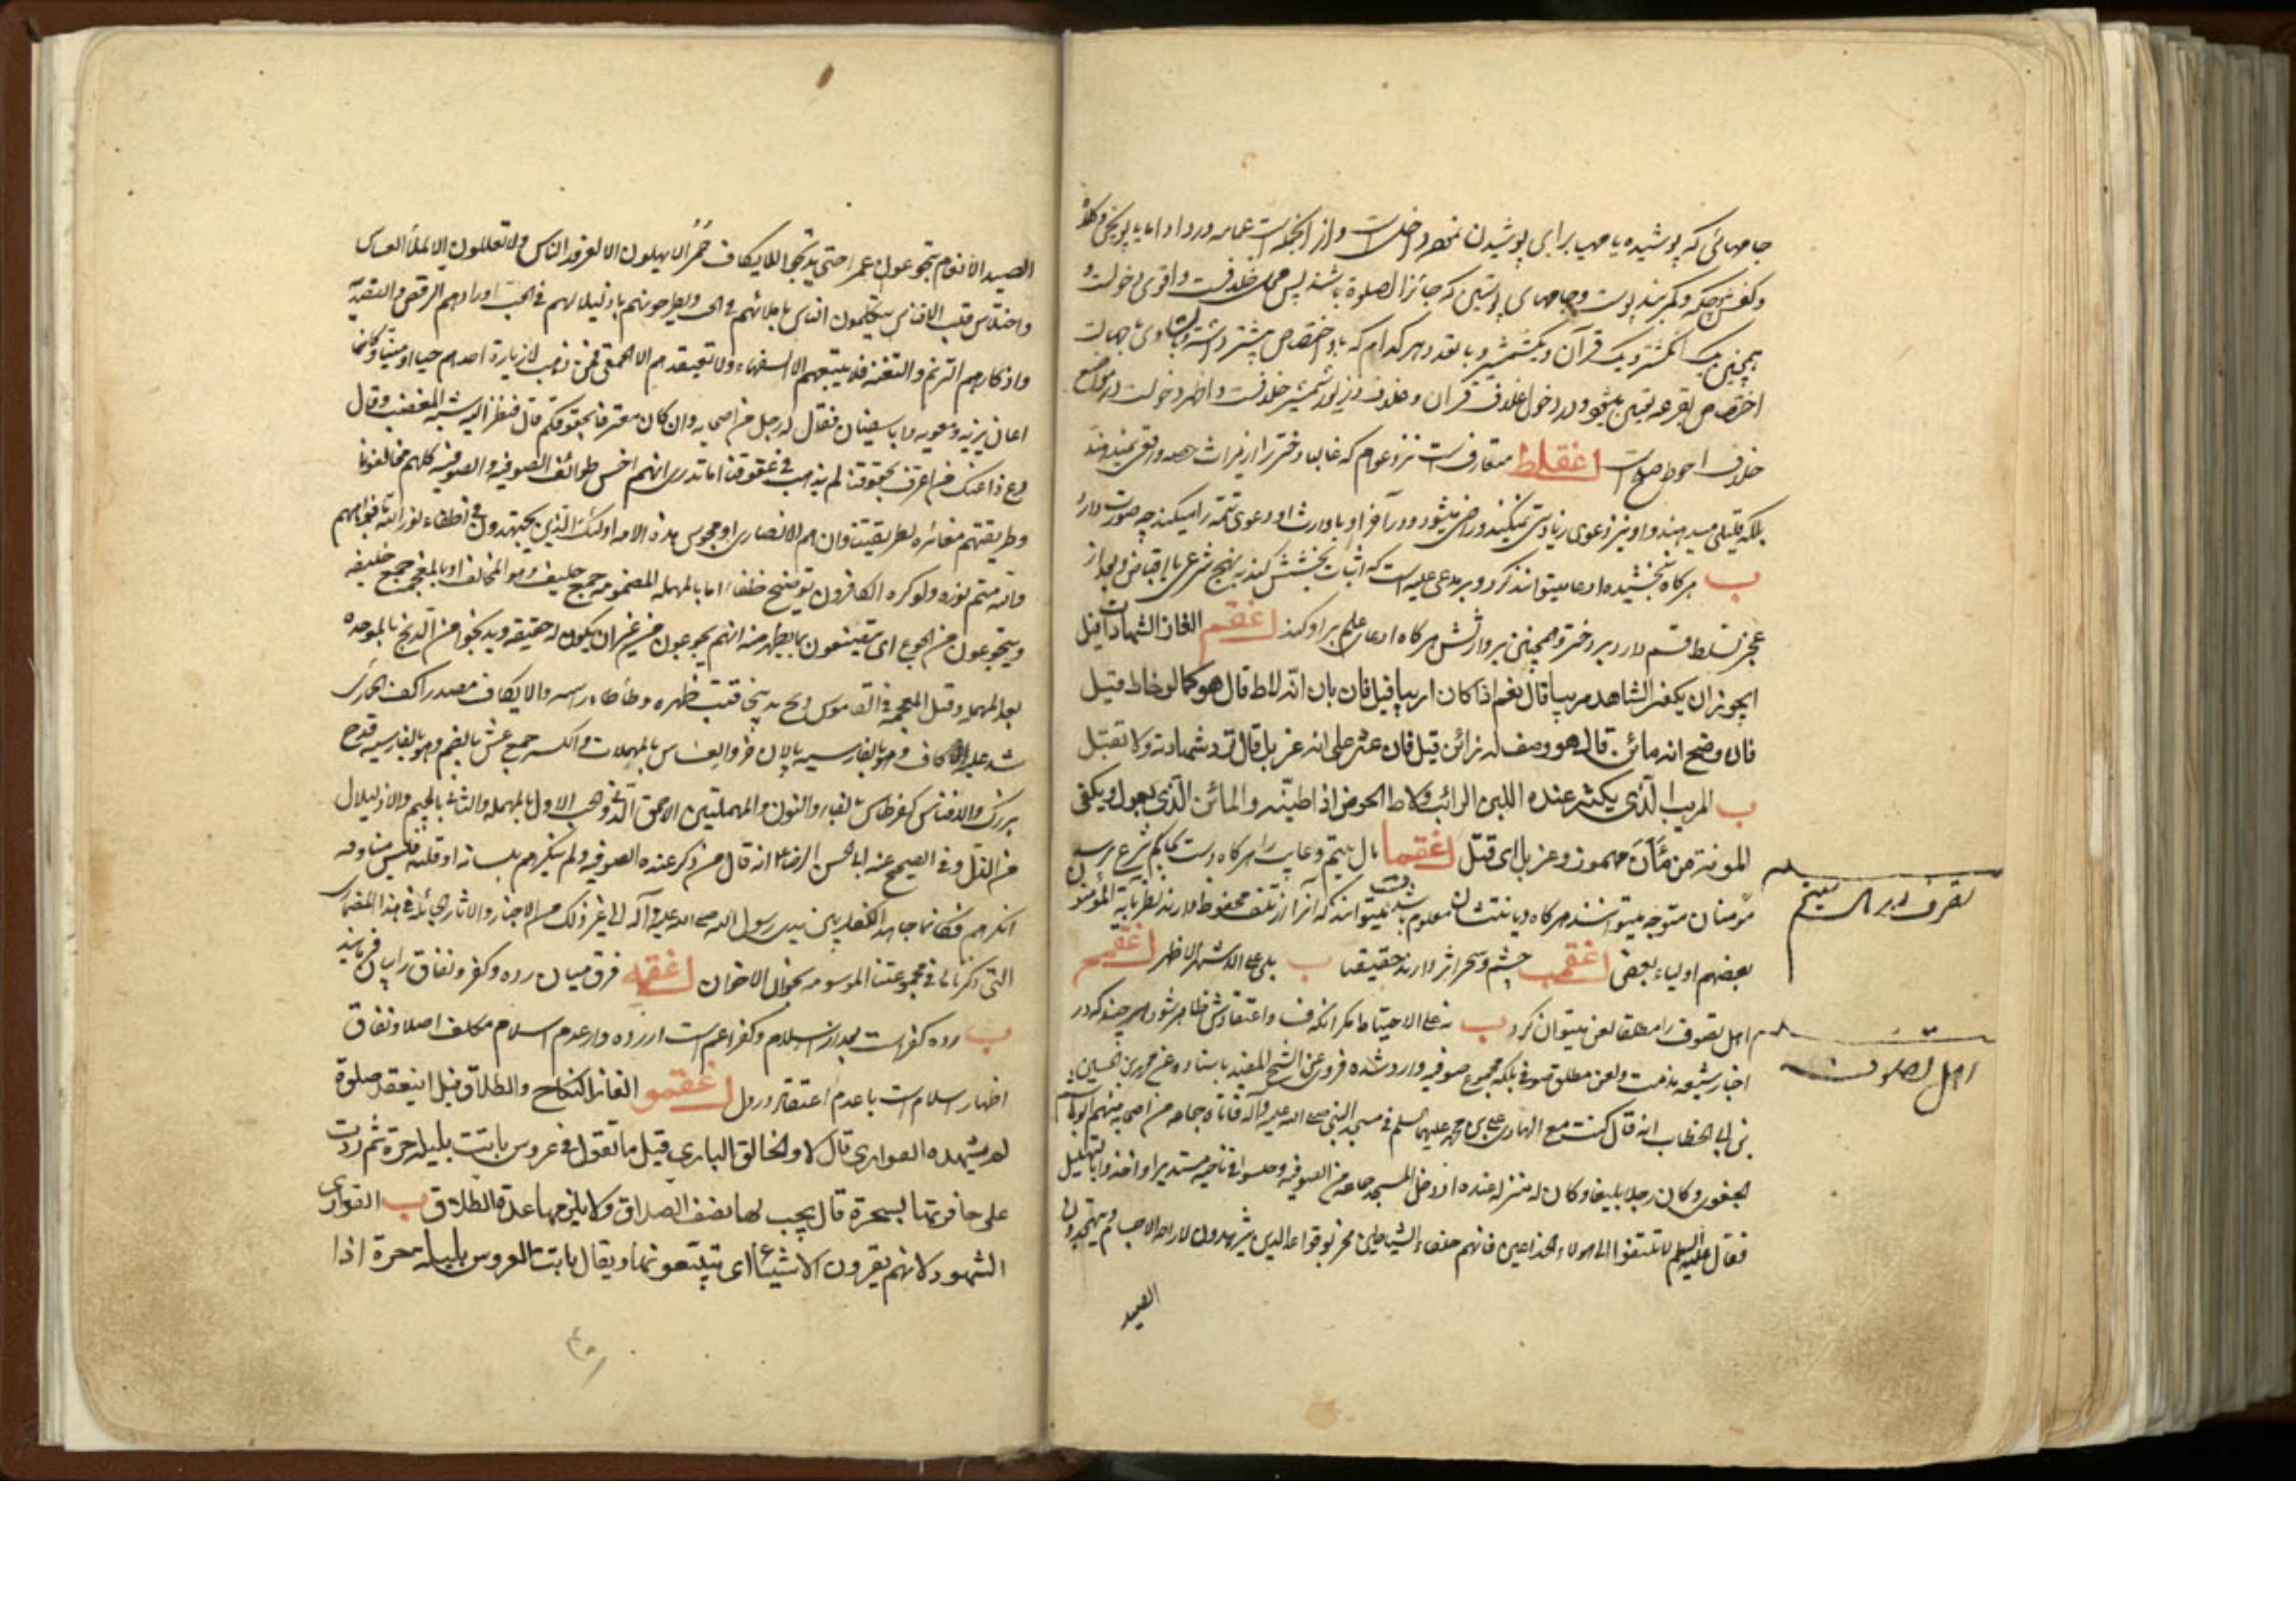 جامهائی که پوشیده یا مهیا برای پوشیدن نموده داخلست و از آنجمله است عمامه و ردا و اما پاپوش و کلاه
و کفش و چکمه و کمربند پوست و جامهای پوستین که جائز الصلوة باشند پس محل خلافست و اقوی دخولست و
همچنین یک انگشتر و یک قرآن و یک شمشیر و با تعدد هر کدام که باو اختصاص بیشتر داشته و با تساوی جهات
اختصاص بقرعه تعیین میشود و در دخول غلاف قرآن و غلاف و زیور شمشیر خلافست و اظهر دخولست در مواضع
خلاف احوط صلح است اغقلط متعارفست نزد عوام که غالبا دختر را از میراث حصه واقعی نمیدهند
بلکه قلیلی میدهند و او نیز دعوی زیادتی نمیکند و راضی میشود و در آخر او یا وارث او دعوی تتمه را میکند چه صورت دارد
ب هرگاه نبخشیده ادعا میتواند کرد و بر مدعی علیه است که اثبات بخشش کند به نهج شرعی با اقباض و بعد از
عجز تسلط قسم دارد بر دختر و همچنین بر وارثش هرگاه ادعای علم بر او کند اغقم الغاز الشهادات قیل
ایجوز ان یکون الشاهد مریبا قال نعم اذا کان اریبا قیل فان بان انه لاط قال هو کما لو خاط قیل
فان وضح انه مائن قال هو وصف له زائن قیل فان عثر علی انه غربل قال ترد شهادته ولا تقبل
ب المریب الذی یکثر عنده اللبن الرائب ولاط الحوض اذا طینه والمائن الذی یعول ویکفی
المونة من مَأَنَ مهموز وغربل ای قتل اغقما مال یتیم و غایب را هرگاه دست بحاکم شرع نرسد
مؤمنان متوجه میتوانند شد هرگاه دیانتشان معلوم باشد میتوانند که آنرا از تلف محفوظ دارند نظر بآیه المؤمنون
بعضهم اولیاء بعض اغقمب چشم و سحر اثر دارند حقیقتا ب بلی علی الاشهر الاظهر اغقمج
اهل تصوف را مطلقا لعن میتوان کرد ب نه علی الاحتیاط مگر آنکه فساد اعتقادش ظاهر شود هر چند که در
اخبار شیعه مذمت و لعن مطلق صوفی بلکه مجموع صوفیه وارد شده فروی عن الشیخ المفید باسناده عن محمد بن الحسین
بن ابی الخطاب انه قال کنت مع الهادی علی بن محمد علیهما السلم فی مسجد النبی صلی الله علیه وآله فاتاه جماعه من اصحابه منهم ابو هاشم
الجعفری وکان رجلا بلیغا وکان له منزله عنده اذ دخل المسجد جماعه من الصوفیه وجلسوا فی ناحیه مستدیرا واخذوا بالتهلیل
فقال علیه السلم لا تلتفتوا الی هولاء الخداعین فانهم خلفاء الشیاطین مخربوا قواعد الدین یتزهدون لاراحه الاجسام ویتهجدون
الصید
تصرف در مال یتیم
اهل تصوف
الصید الانعام یتجوعون عمرا حتی یدبخوا للایکاف حُمُرًا لا یهللون الا لغرور الناس ولا تعللون الا لملأ العساس
واختلاس قلب الدفناس یتکلمون الناس باملائهم فی الحب ویطرحونهم باذلیلالهم فی الجب اورادهم الرقص والتصدیة
واذکارهم الترنم والتغنیه فلا یتبعهم الا السفهاء ولا تعتقد بهم الا الحمقی فمن ذهب لزیارة احدهم حیا او میتا فکانما
اعان یزید ومعویه وابا سفیان فقال له رجل من اصحابه وان کان معترفا بحقوقکم قال فنظر الیه شبه المغضب وقال
دع ذا عنک من اعترف بحقوقنا لم یذهب فی عقوقنا اما تدری انهم اخس طوائف الصوفیه والصوفیه کلهم مخالفونا
وطریقتهم مغائره لطریقتنا وان هم الا نصاری او مجوس هذه الامه اولئک الذین یجتهدون فی اطفاء نور الله بافواههم
والله متم نوره ولو کره الکافرون توضیح خلفاء اما بالمهمله المضمومه جمع حلیف وهو المخالف او بالمعجمه جمع خلیفه
ویتجوعون من الجوع ای یتصنعون بما یظهر منه انهم یجوعون من غیر ان یکون له حقیقه ویدبخوا من التدبخ بالموحده
بعد المهمله وقبل المعجمه فی القاموس دبخ تدبیخا قبب ظهره وطأطأ راسه والایکاف مصدر اکف الحمار ای
شد علیه الاکاف وهو بالفارسیه پالان خر والعساس بالمهملات والکسر جمع عس بالضم وهو بالفارسیه قدح
بزرگ والدفناس کقرطاس بالفاء والنون والمهملتین الاحمق الدنی والحب الاول بالمهمله والثانی بالجیم والاذلیلال
من الذل وفی الصحیح عنه ابی الحسن الرضا ع انه قال من ذکر عنده الصوفیه ولم ینکرهم بلسانه او قلبه فلیس منا ومن
انکرهم فکانما جاهد الکفار بین یدی رسول الله صلی الله علیه وآله الی غیر ذلک من الاخبار والآثار الجائیة فی هذا المضمار
التی ذکرناها فی مجموعتنا الموسومه بخوان الاخوان اغقمد فرق میان رده و کفر و نفاق را بیان فرمایند
ب رده کفر است بعد از اسلام و کفر اعم است از رده و از عدم اسلام مکلف اصلا و نفاق
اظهار اسلام است با عدم اعتقاد در دل اغقمو الغاز النکاح والطلاق قیل اینعقد صلوة
لم یشهده العواری قال لا والخالق الباری قیل ما تقول فی عروس باتت بلیلة حرة ثم ردت
علی حافرتها بسحرة قال یجب لها نصف الصداق ولا یلزمها عدة الطلاق ب القواری
الشهود لانهم یقرون الاشیاء ای یتبعونها ویقال باتت العروس بلیلة حرة اذا